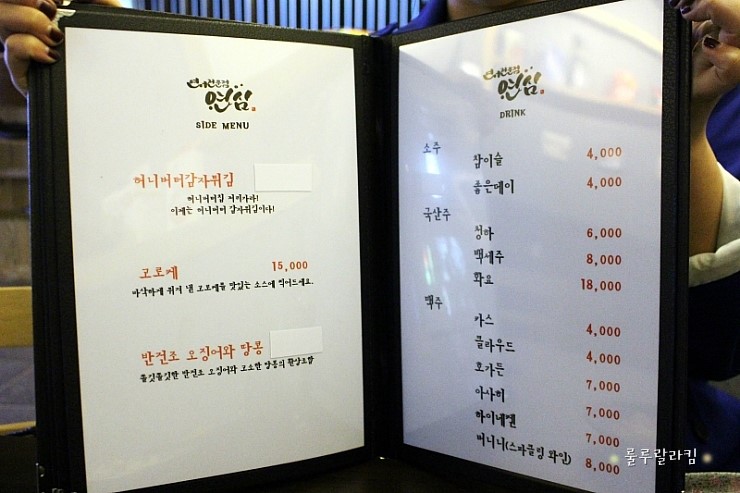 연어전문점
연심
SIDE MENU
허니버터감자튀김
허니버터칩 저리가라!
이제는 허니버터 감자튀김이다!
고로케 15,000
바삭하게 튀겨 낸 고로케를 맛있는 소스에 찍어드세요.
반건조 오징어와 땅콩
쫄깃쫄깃한 반건조 오징어와 고소한 땅콩의 환상조합
연어전문점
연심
DRINK
소주
참이슬 4,000
좋은데이 4,000
국산주
청하 6,000
백세주 8,000
화요 18,000
맥주
카스 4,000
클라우드 4,000
호가든 7,000
아사히 7,000
하이네켄 7,000
버니니(스파클링 와인) 8,000
룰루랄라킴